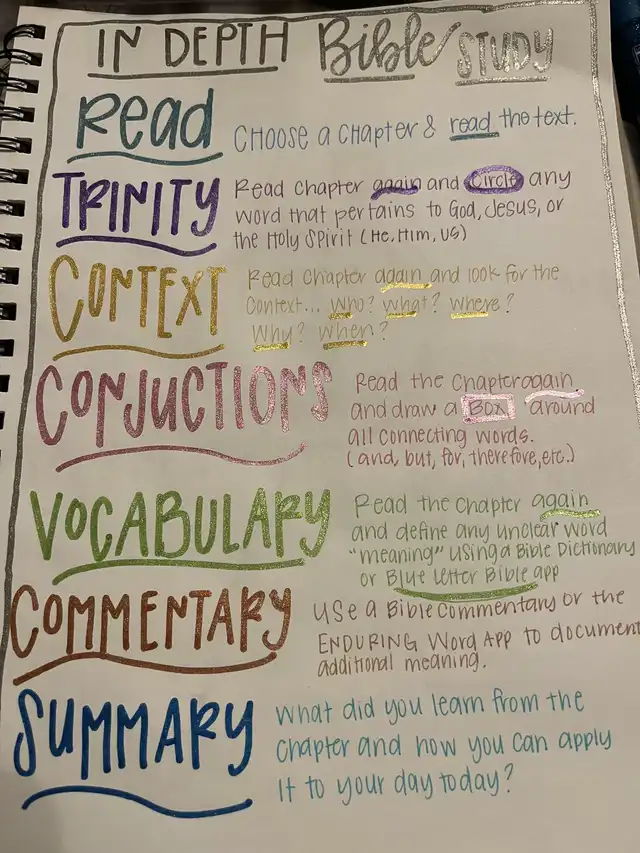 IN DEPTH Bible STUDY
Read
CHOOSE a CHAPTER & read the text.
TRINITY
Read Chapter again and Circle any
word that pertains to God, Jesus, or
the Holy Spirit (He, Him, US)
CONTEXT
Read Chapter again and look for the
Context... Who? What? Where?
Why? When?
CONJUCTIONS
Read the Chapter again
and draw a BOX around
all connecting words.
(and, but, for, therefore, etc.)
VOCABULARY
Read the Chapter again
and define any unclear word
"meaning" using a Bible Dictionary
or Blue Letter Bible app
COMMENTARY
USE a Bible Commentary or the
ENDURING Word App to document
additional meaning.
SUMMARY
What did you learn from the
chapter and how you can apply
It to your day today?